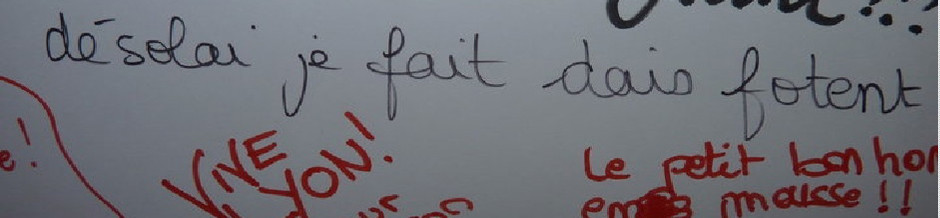 désolai je fait dais fotent
e!
VIVE
YON!
Le petit bon hom
en mousse !!